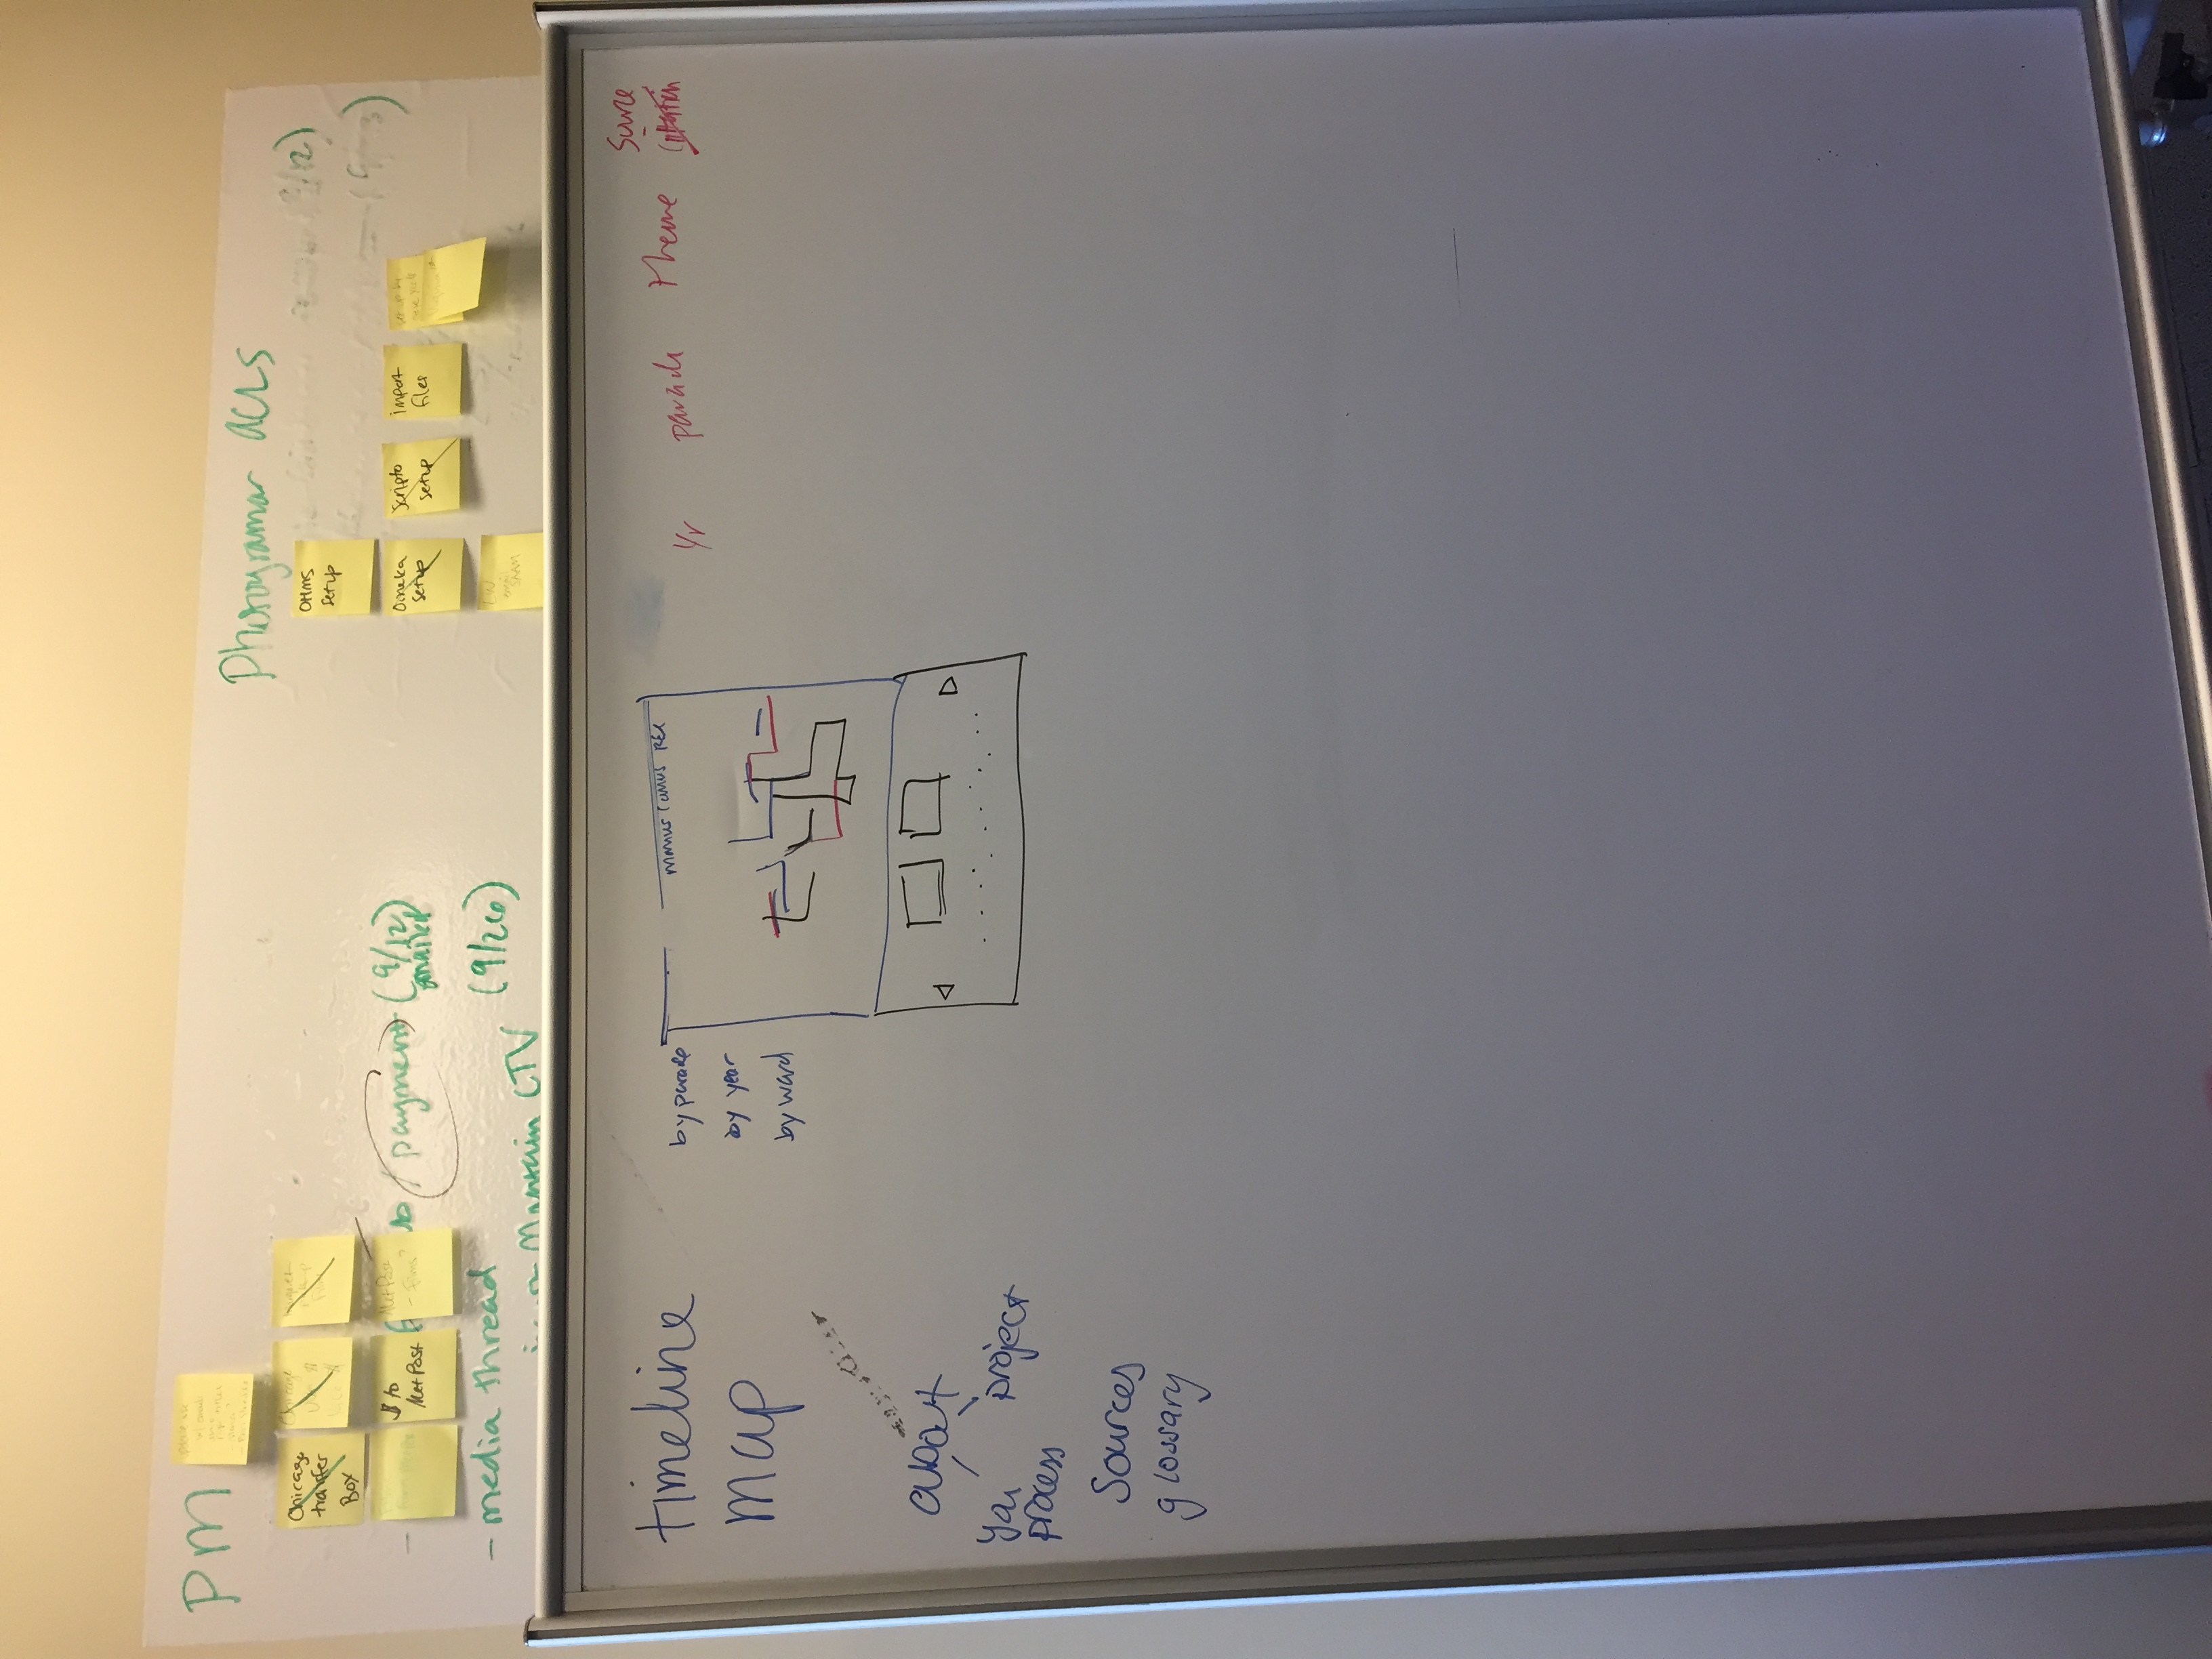 PM
Chicago
transfer
Box
$ to
MetPost
MetPost
payment (9/12)
emailed
- media thread (9/26)
Maintain CTV
Photogramar ACLS
OHMS
setup
Omeka
setup
Scripto
setup
import
files
timeline
map
about
you
process
project
Sources
glossary
by parade
by year
by ward
Momus Comus REX
Yr
parade
theme
Source
Citation